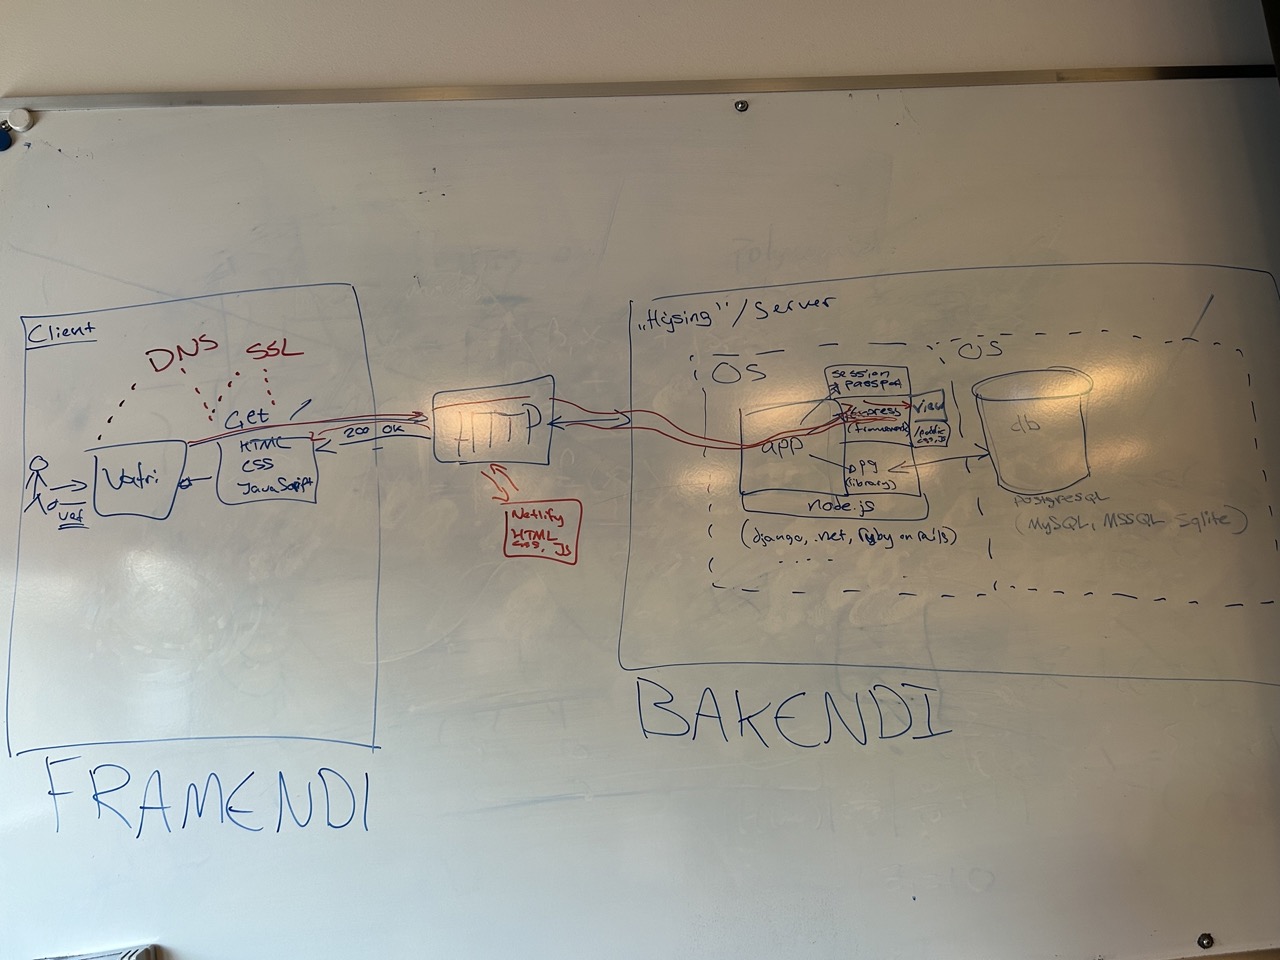 Client
DNS SSL
Get /
200 OK
Vafri
HTML
CSS
JavaScript
vef
FRAMENDI
HTTP
Netlify
HTML
CSS, JS
„Hýsing“/Server
OS
OS
session
passport
express
(framework)
view
/public
css, js
app
pg
(library)
node.js
(django, .net, Ruby on Rails)
....
db
PostgreSQL
(MySQL, MSSQL Sqlite)
BAKENDI